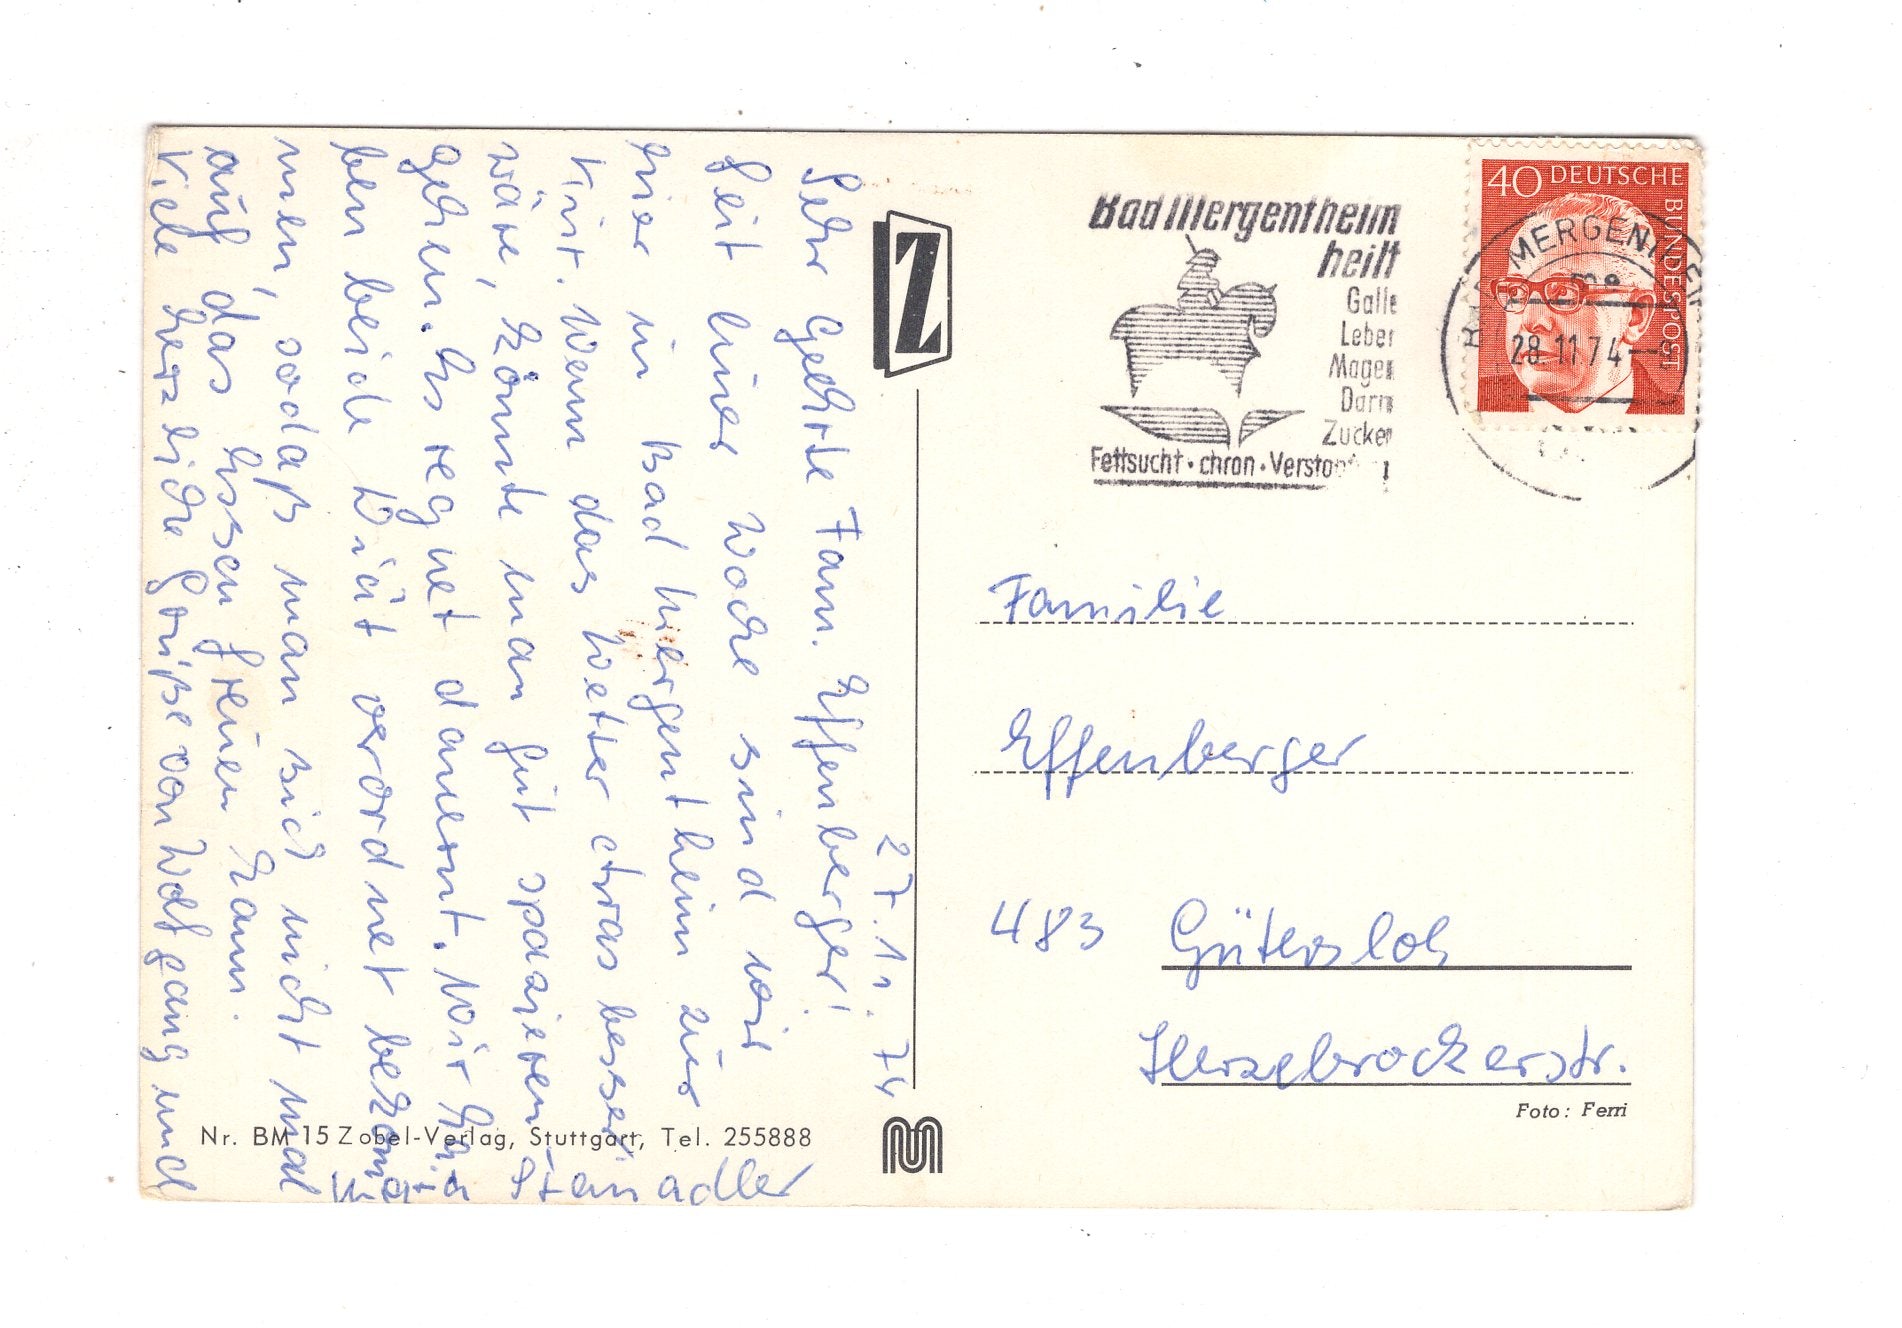 27.11.74
Sehr Geehrte Fam. Effenberger!
Seit einer Woche sind wir
hier in Bad Mergentheim zur
Kur. Wenn das Wetter etwas besser
wäre, könnte man gut spazieren
gehen. Es regnet dauernt. Wir ha
ben beide Diät verordnet bekom
men, sodaß man sich nicht mal
auf das Essen freuen kann.
Viele herzliche Grüße von Wolfgang und
Stanadler
Z
Nr. BM 15 Zobel-Verlag, Stuttgart, Tel. 255888
Bad Mergentheim
heilt
Galle
Leber
Magen
Darm
Zucker
Fettsucht · chron · Verstopfung
40 DEUTSCHE BUNDESPOST
BAD MERGENTHEIM
28.11.74
Familie
Effenberger
483 Gütersloh
Herzebrockerstr.
Foto: Ferri